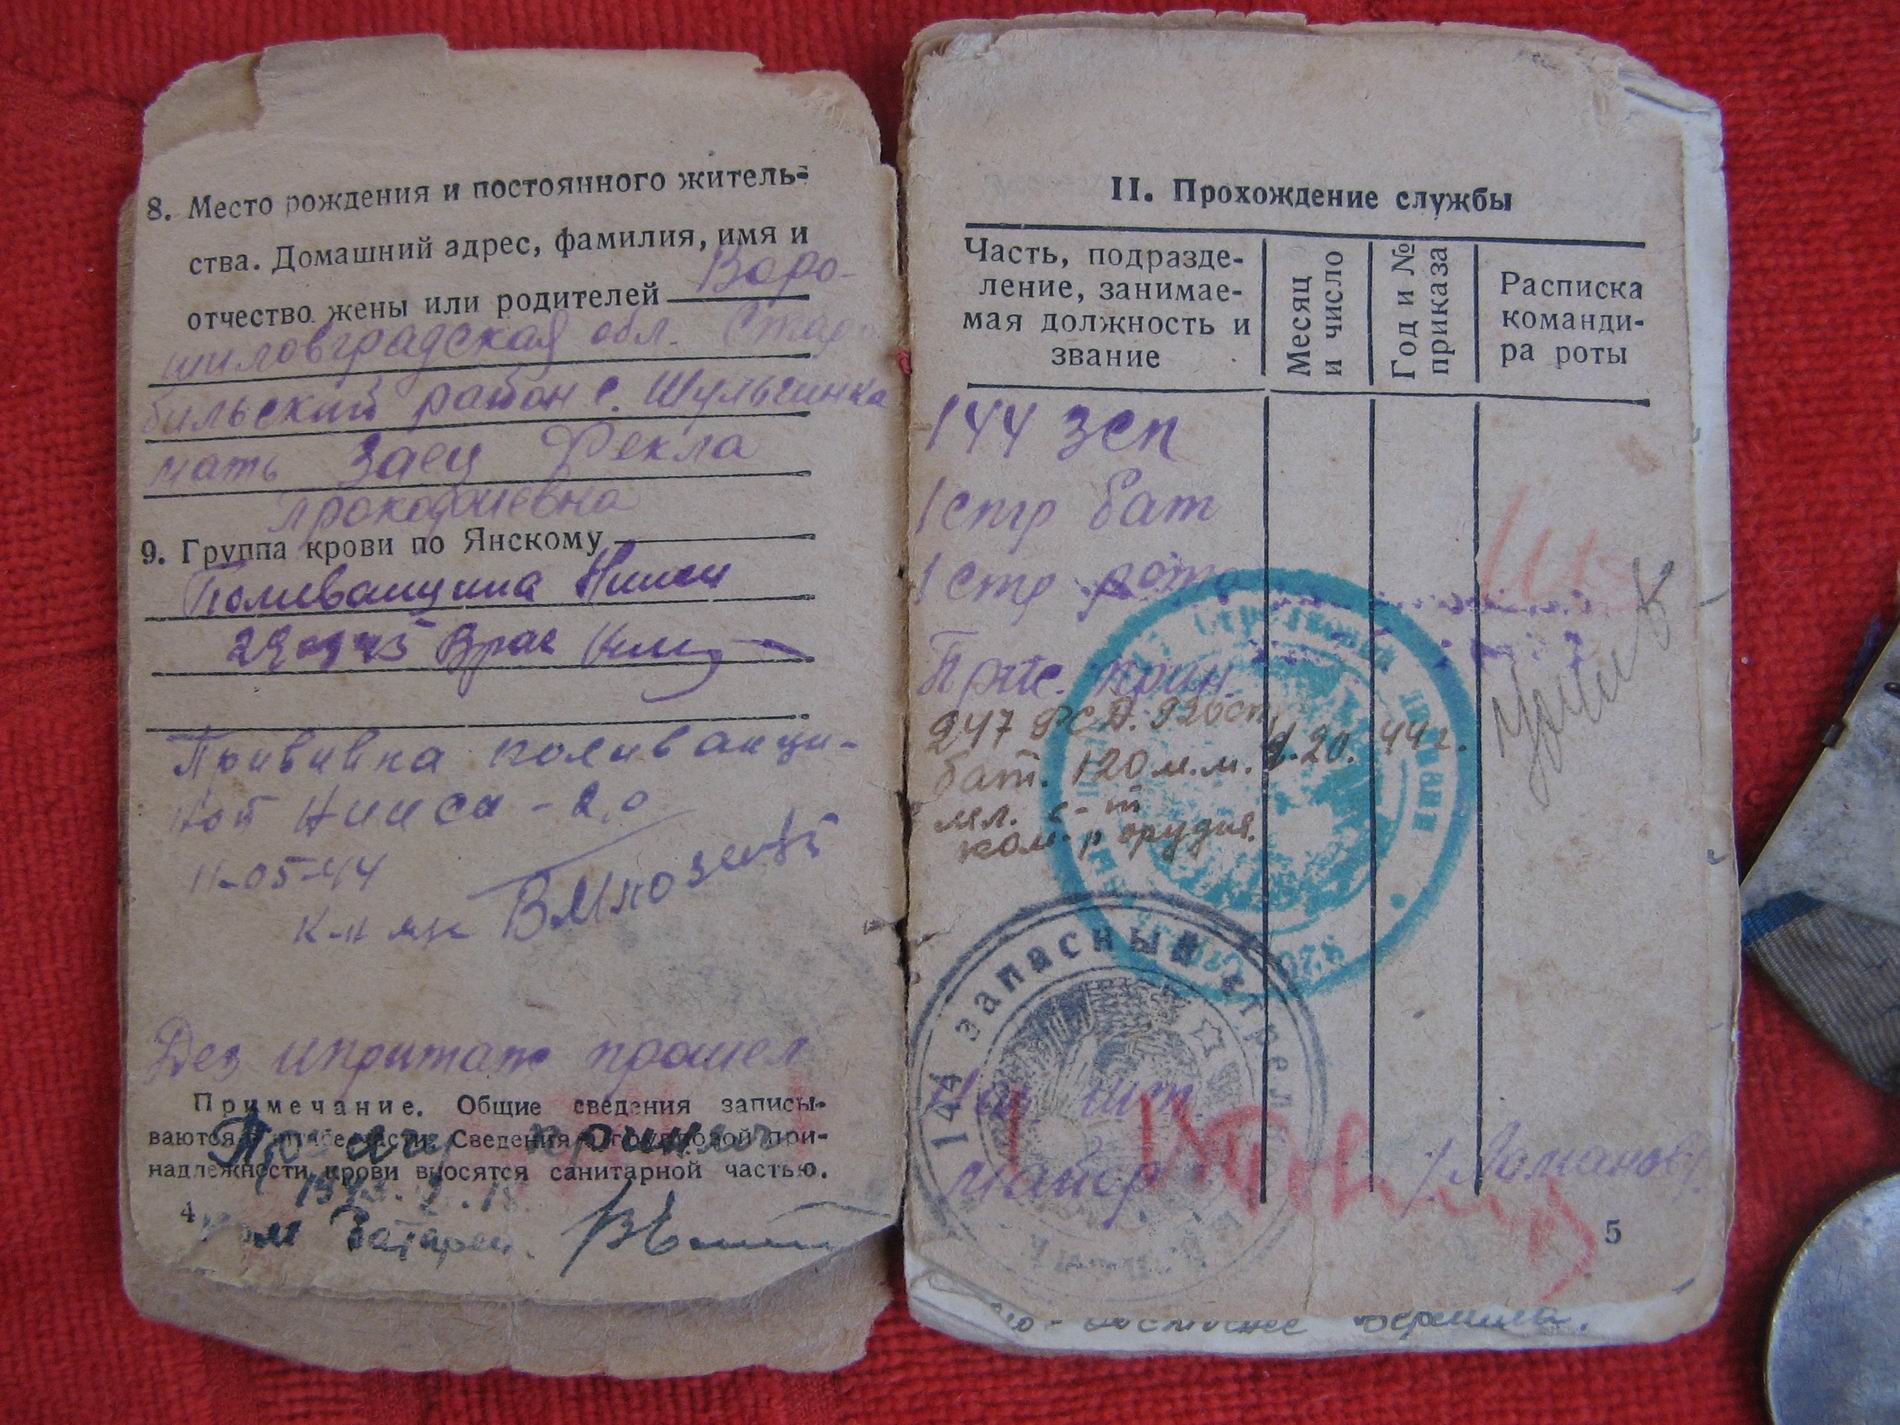 8. Место рождения и постоянного житель-
ства. Домашний адрес, фамилия, имя и
отчество жены или родителей Воро-
шиловградская обл. Старо
бильский район с. Шульгинка
мать Заец Фекла
Прокофиевна
9. Группа крови по Янскому
Поливакцина
Врач
Прививка поливакци-
ной НИИСа - 2,0
11-05-44
к-н м/с
Дез ипритат прошел
Примечание. Общие сведения записы-
ваются в штабе части. Сведения о групповой при-
надлежности крови вносятся санитарной частью.
Присягу принял
ком батареи
4
II. Прохождение службы
Часть, подразде-
ление, занимае-
мая должность и
звание
Месяц
и число
Год и №
приказа
Расписка
команди-
ра роты
144 зсп
1 стр бат
1 стр рота
Прис. прин.
247 920 сп
бат. 120 м.м. 20. 44 г.
мл. с-т
ком-р орудия.
144 запасный стрел
920
Нач шт
майор /Романов/
5